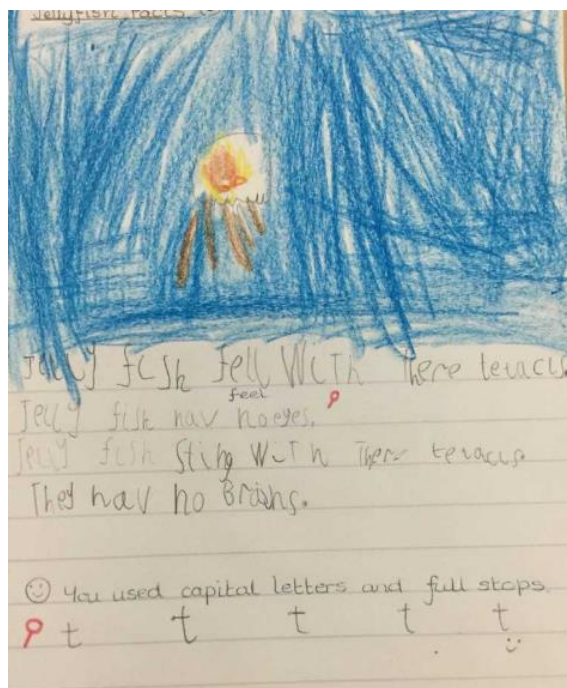 Jellyfish Facts
Jelly fish fell With There teracls.
feel
Jelly fish hav no eyes.
Jelly fish Sting With There teracls.
They hav no Brains.
☺ You used capital letters and full stops.
t t t t t